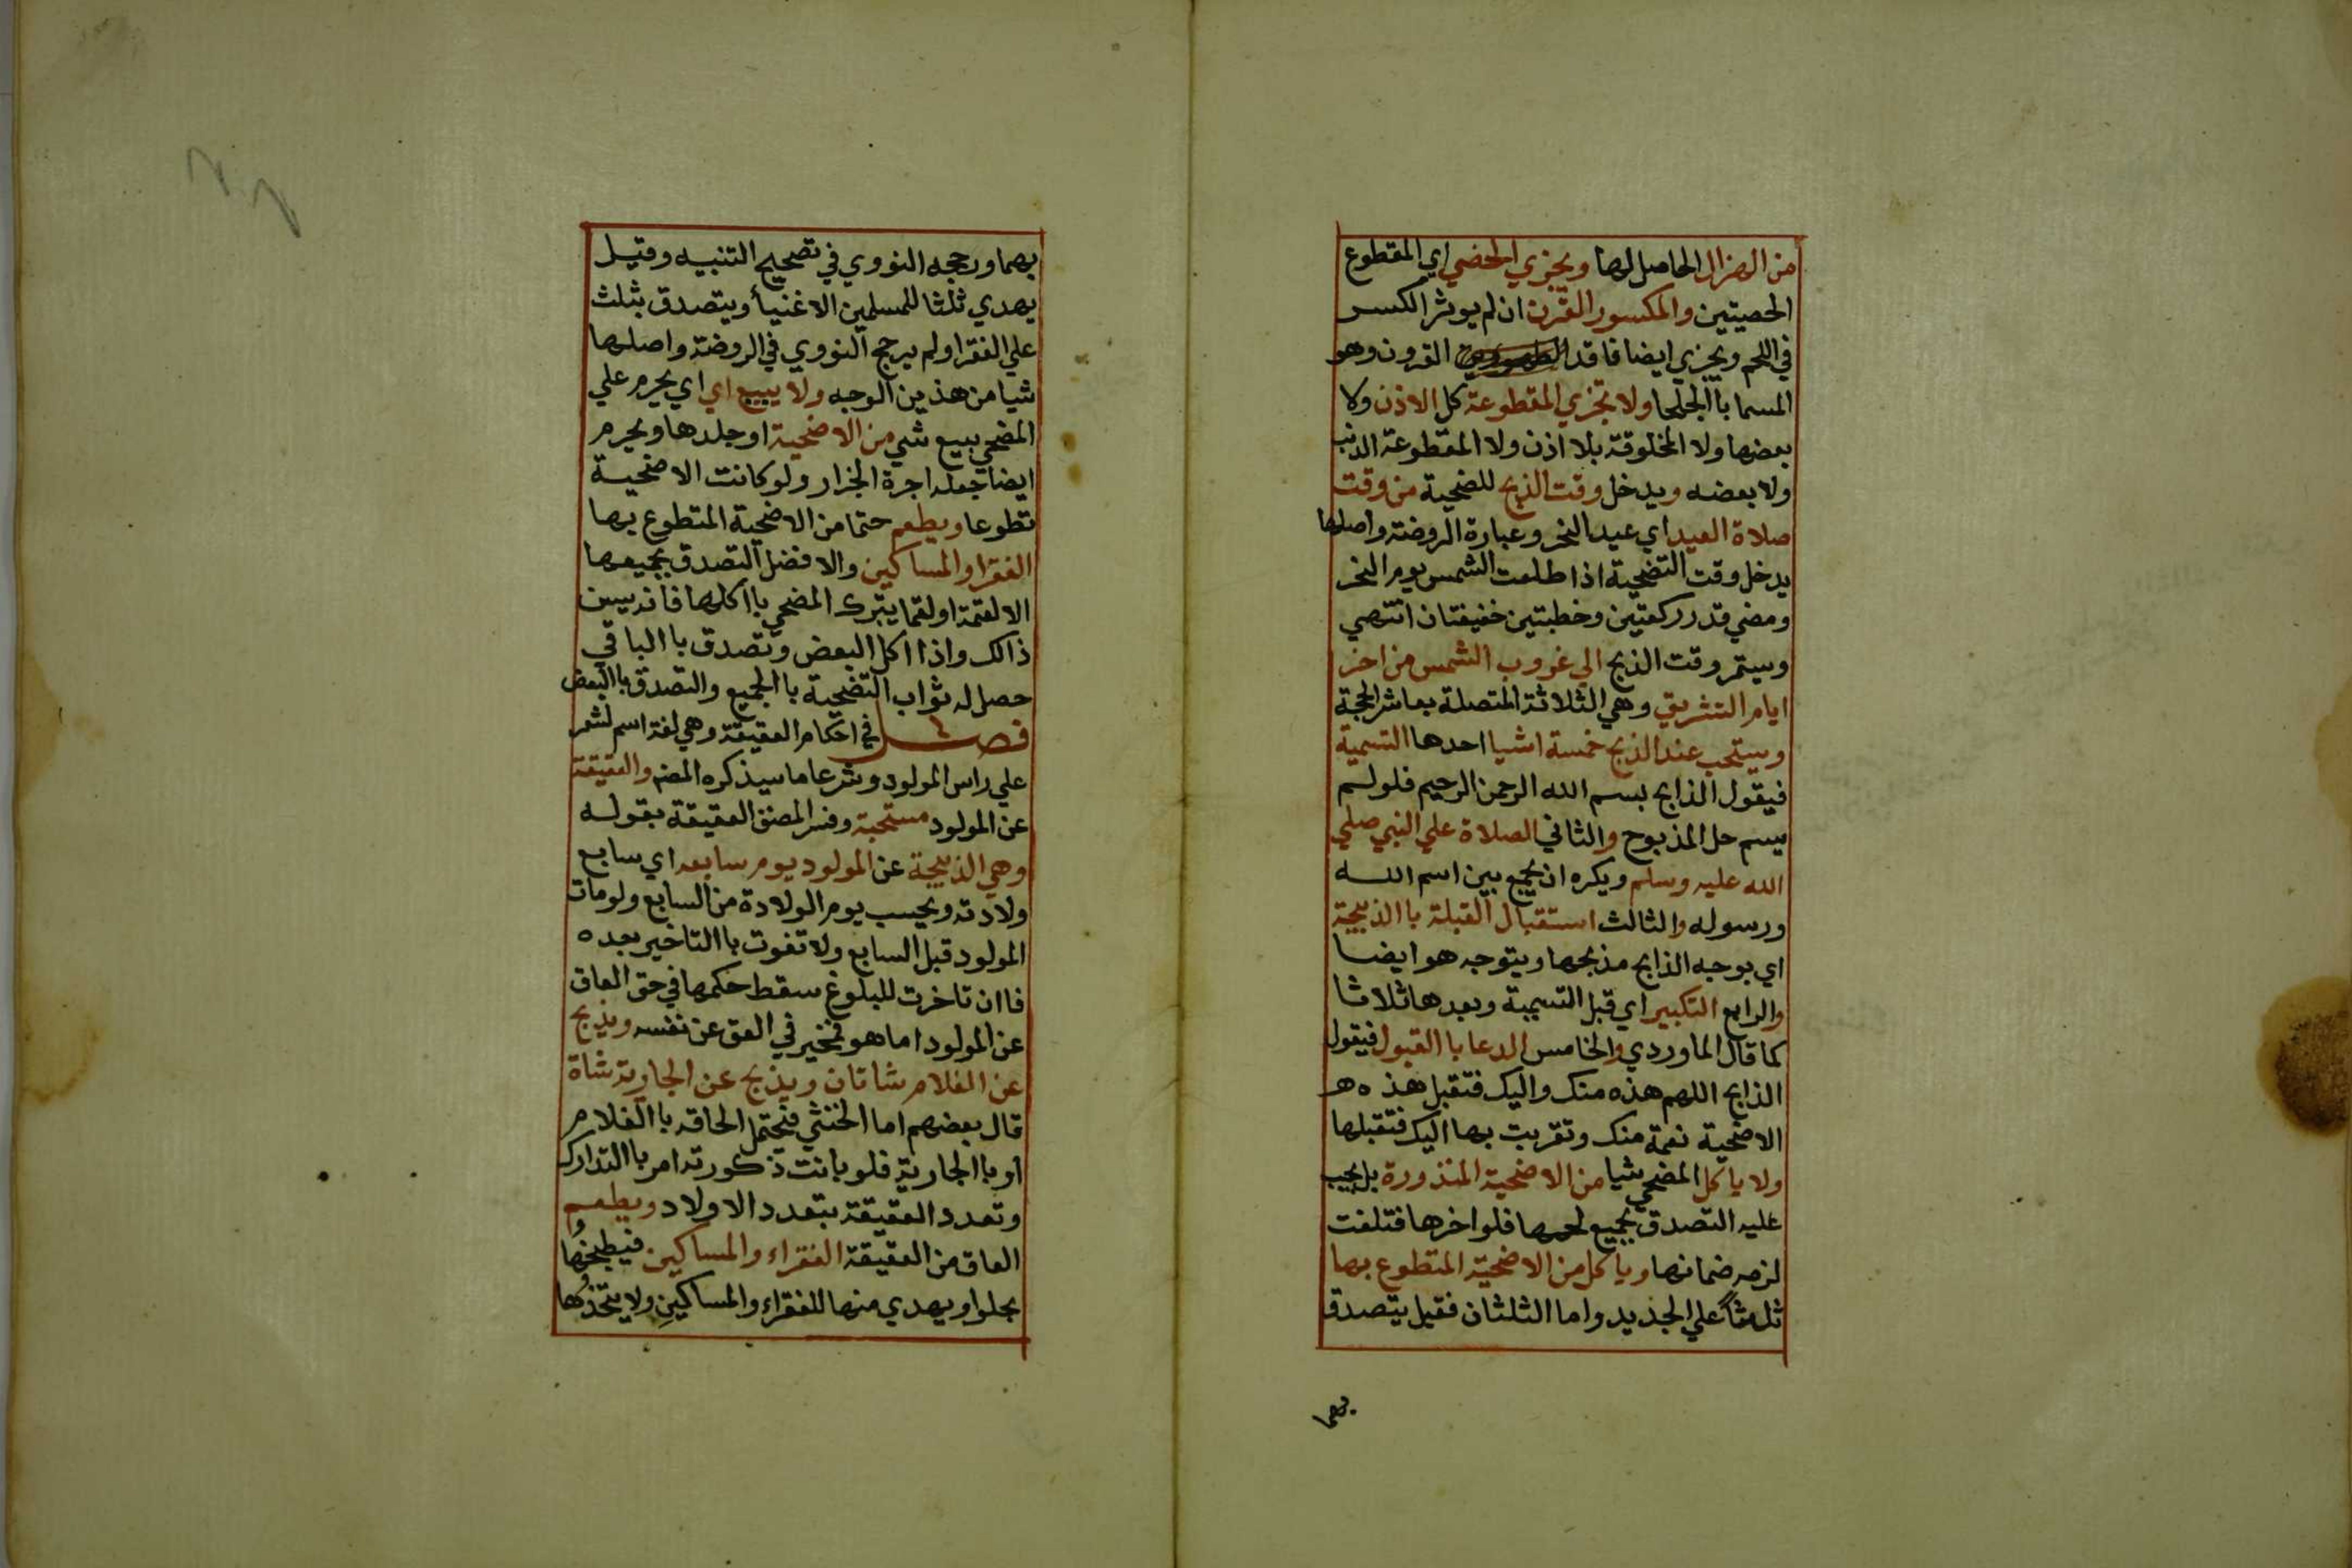 من الهزال الحاصل لها ويجزي الخصي اي المقطوع
الخصيتين والمكسور القرن ان لم يوثر الكسر
في اللحم ويجزي ايضا فاقد القرون وهو
المسما باالجلحا ولا تجزي المقطوعة كل الاذن ولا
بعضها ولا المخلوقة بلا اذن ولا المقطوعة الذنب
ولا بعضه ويدخل وقت الذبح للضحية من وقت
صلاة العيد اي عيد النحر وعبارة الروضة واصلها
يدخل وقت التضحية اذا طلعت الشمس يوم النحر
ومضي قدر ركعتين وخطبتين خفيفتان انتهي
ويستمر وقت الذبح الي غروب الشمس من اخر
ايام التشريق وهي الثلاثة المتصلة بعاشر الحجة
ويستحب عند الذبح خمسة اشيا احدها التسمية
فيقول الذابح بسم الله الرحمن الرحيم فلو لم
يسم حل المذبوح والثاني الصلاة علي النبي صلي
الله عليه وسلم ويكره ان يجمع بين اسم الله
ورسوله والثالث استقبال القبلة باالذبيحة
اي يوجه الذابح مذبحها ويتوجه هو ايضا
والرابع التكبير اي قبل التسمية وبعدها ثلاثا
كما قال الماوردي والخامس الدعا باالقبول فيقول
الذابح اللهم هذه منك واليك فتقبل هذه
الاضحية نعمة منك وتقربت بها اليك فتقبلها
ولا ياكل المضحي شيا من الاضحية المنذورة بل يجب
عليه التصدق بجميع لحمها فلو اخرها فتلفت
لزمه ضمانها وياكل من الاضحية المتطوع بها
ثلثاً علي الجديد واما الثلثان فقيل يتصدق
بهما
بهما ورجحه النووي في تصحيح التنبيه وقيل
يهدي ثلثا للمسلمين الاغنيا ويتصدق بثلث
علي الفقرا ولم يرجح النووي في الروضة واصلها
شيا من هذين الوجه ولا يبيع اي اي يحرم علي
المضحي بيع شي من الاضحية او جلدها ويحرم
ايضا جعله اجرة الجزار ولو كانت الاضحية
تطوعا ويطعم حتما من الاضحية المتطوع بها
الفقرا والمساكين والافضل التصدق بجميعها
الا لقمة او لقما يتبرك المضحي باأكلها فانه يسن
ذالك واذا اكل البعض وتصدق باالباقي
حصل له ثواب التضحية باالجميع والتصدق باالبعض
فصل في احكام العقيقة وهي لغة اسم لشعر
علي راس المولود وشرعا ما سيذكره المصنف والعقيقة
عن المولود مستحبة وفسر المصنف العقيقة بقوله
وهي الذبيحة عن المولود يوم سابعه اي سابع
ولادته ويحسب يوم الولادة من السابع ولو مات
المولود قبل السابع ولا تفوت باالتاخير بعده
فاان تاخرت للبلوغ سقط حكمها في حق العاق
عن المولود اما هو فمخير في العق عن نفسه ويذبح
عن الغلام شاتان ويذبح عن الجارية شاة
قال بعضهم اما الخنثي فيحتمل الحاقه باالغلام
او باالجارية فلو بانت ذكورته امر باالتدارك
وتعدد العقيقة بتعدد الاولاد ويطعم
العاق من العقيقة الفقراء والمساكين فيطبخها
بحلوا ويهدي منها للفقراء والمساكين ولا يتخذها